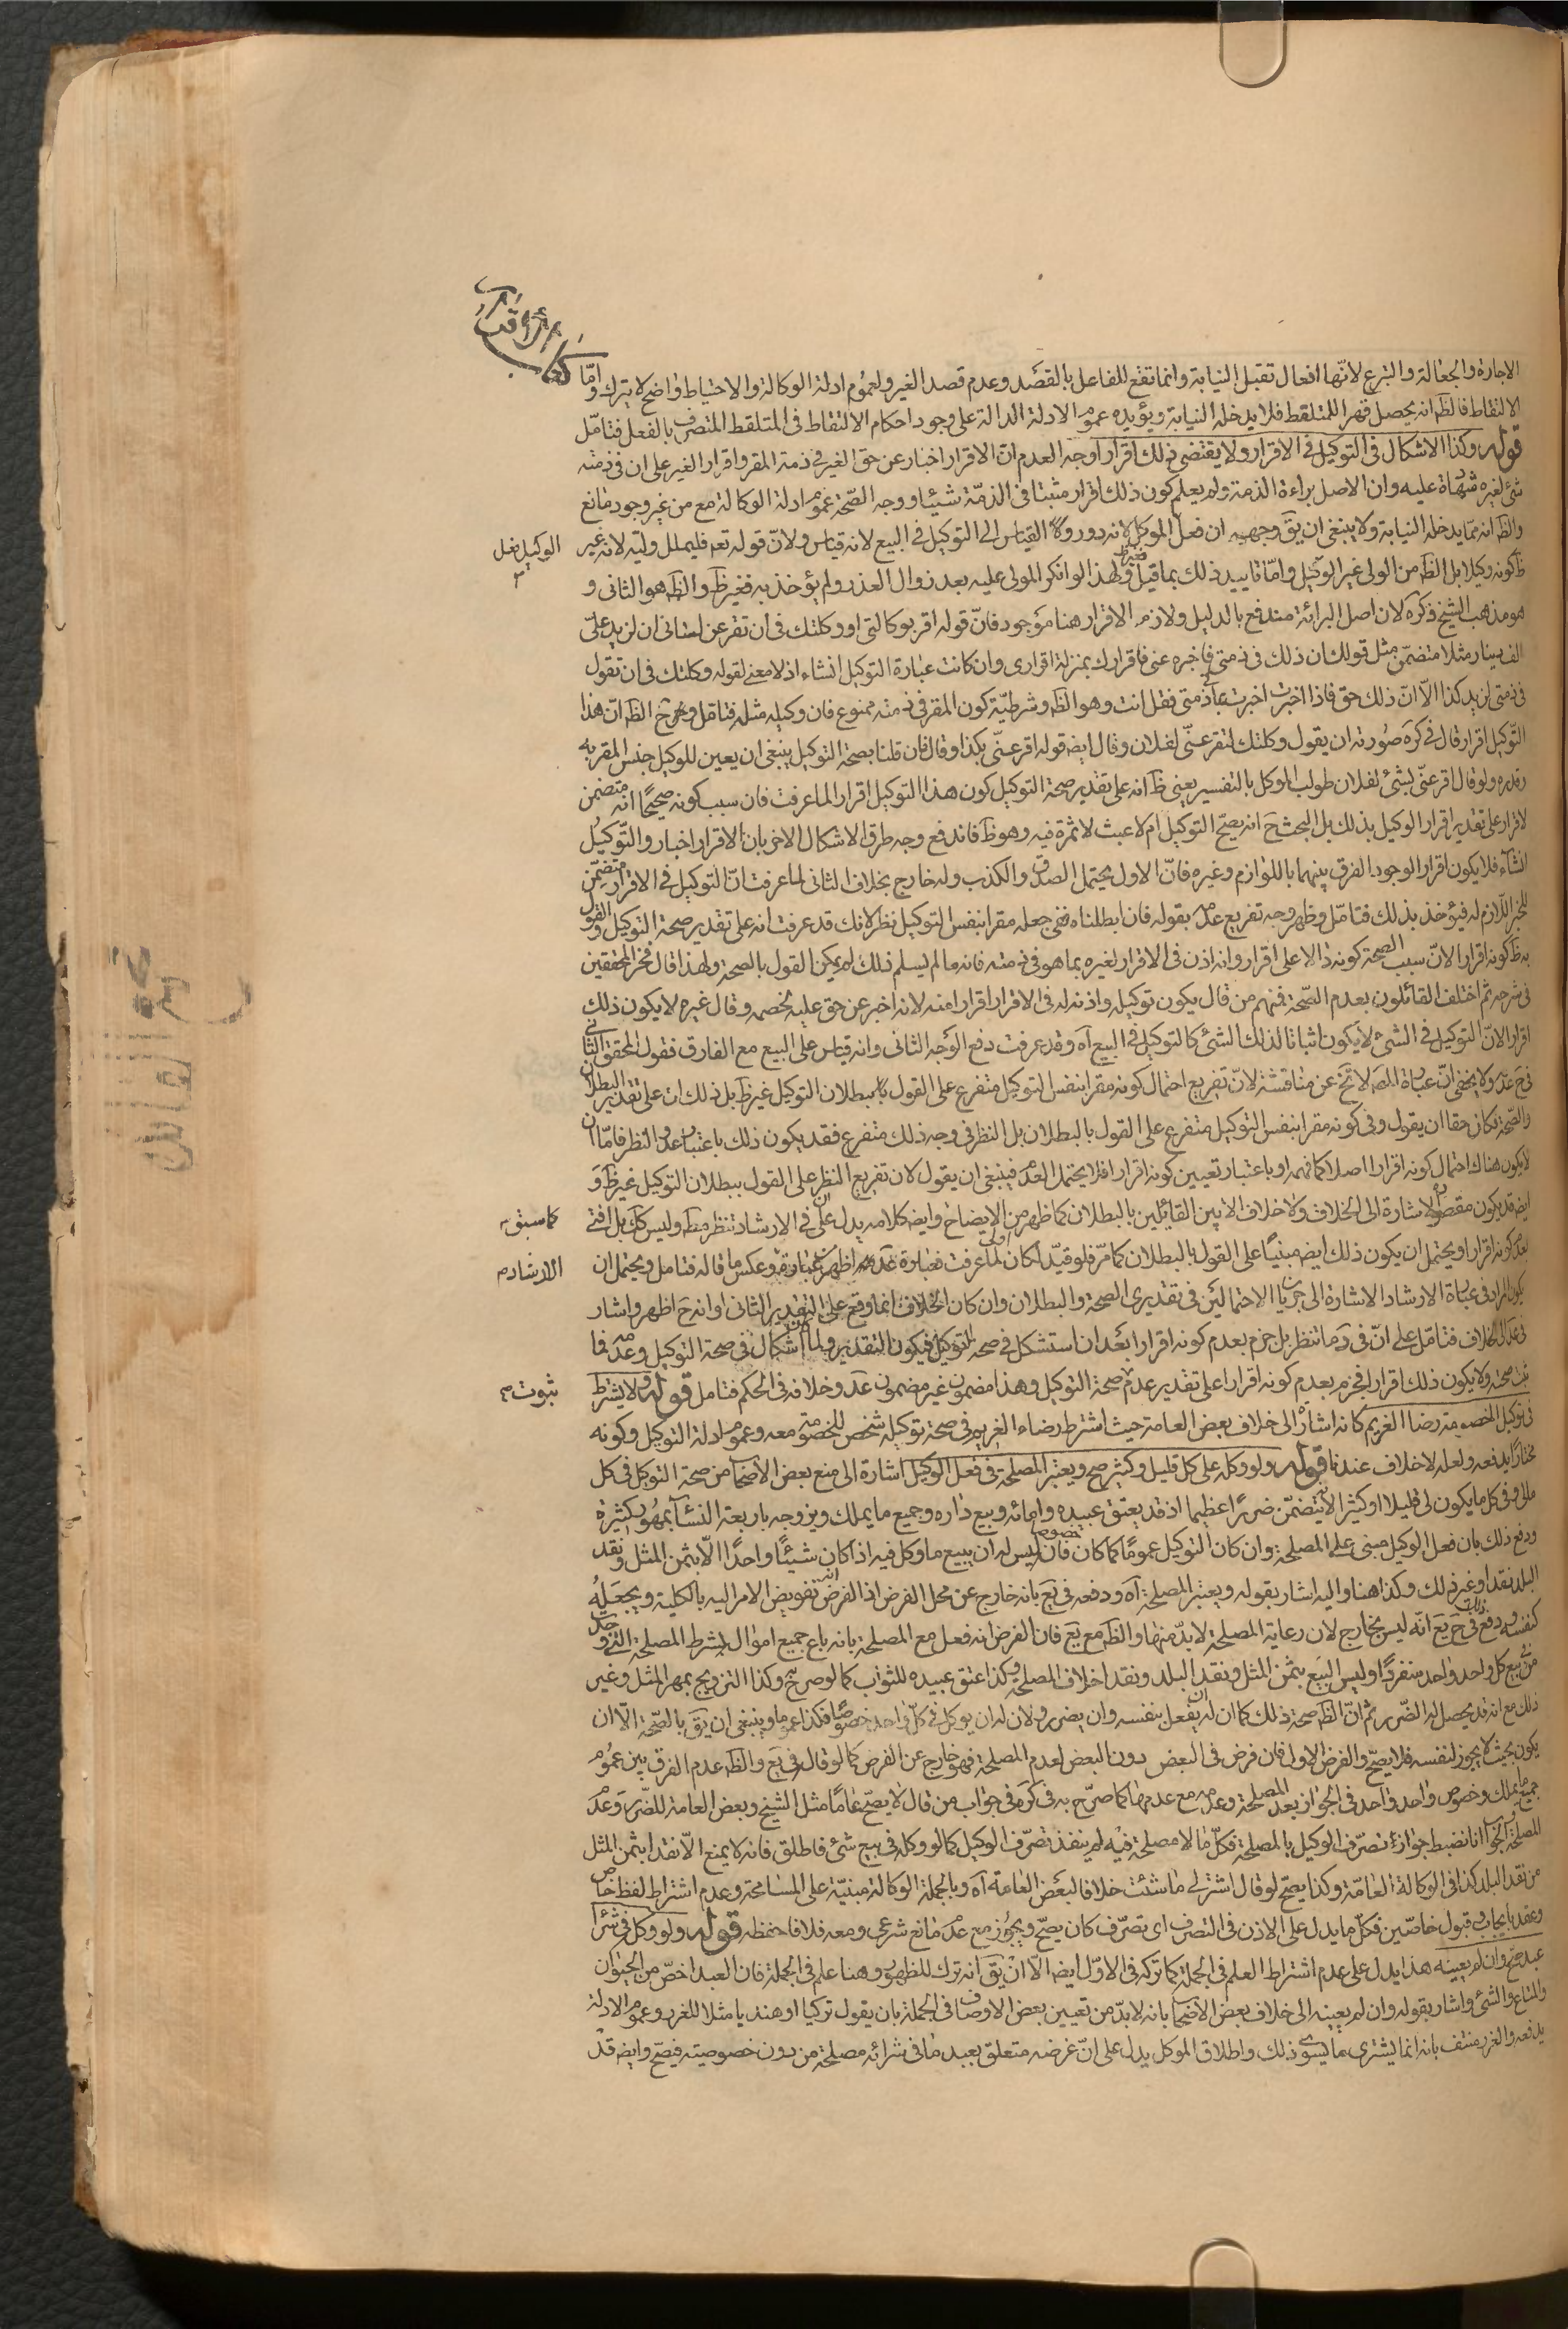 كتاب الاقرار
الاجارة والجعالة والتبرع لانها افعال تقبل النيابة وانما تقع للفاعل بالقصد وعدم قصد الغير ولعموم ادلة الوكالة والاحتياط واضح لا يترك واما
الالتقاط فالظ انه يحصل قهرا للملتقط فلا يدخله النيابة ويؤيده عموم الادلة الدالة على وجود احكام الالتقاط في الملتقط المتصرف بالفعل فتامل
قوله وكذا الاشكال في التوكيل في الاقرار ولا يقتضي ذلك اقرارا وجه العدم ان الاقرار اخبار عن حق الغير في ذمة المقر واقرار الغير على ان في ذمته
شئ لغيره شهادة عليه وان الاصل براءة الذمة ولم يعلم كون ذلك اقرار مثبتا في الذمة شيئا ووجه الصحة عموم ادلة الوكالة مع من غير وجود مانع
والظ انه مما يدخله النيابة ولا ينبغي ان يق وجهه ان فعل الموكل لانه دور ولا القياس الى التوكيل في البيع لانه قياس ولان قوله تعه فليملل وليه لانه غير
الوكيل فعل
ظ كونه وكيلا بل الظ من الولي غير الوكيل واما تاييد ذلك بما قيل ولهذا لو انكر المولى عليه بعد زوال العذر ولم يؤخذ به فغير ظ والظ هو الثاني و
هو مذهب الشيخ ذكره لان اصل البرائة مندفع بالدليل ولازم الاقرار هنا موجود فان قوله اقر بوكالتي او وكلتك في ان تقر عن لساني ان لزيد علي
الف دينار مثلا متضمن مثل قولك ان ذلك في ذمتي فاخبره عني فاقرارك بمنزلة اقراري وان كانت عبارة التوكيل انشاء اذ لا معنى لقوله وكلتك في ان تقول
في ذمتي لزيد كذا الا ان ذلك حق فاذا اخبرت اخبرت عما في ذمتي فقل انت وهو الظ وشرطية كون المقر في ذمته ممنوع فان وكيله مثله فتامل وح الظ ان هذا
التوكيل اقرار قال في كره صورته ان يقول وكلتك لتقر عني لفلان وقال ايضه قوله اقر عني بكذا وقال فان قلنا بصحة التوكيل ينبغي ان يعين للوكيل جنس المقر به
وقدره ولو قال اقر عني بشئ لفلان طولب الموكل بالتفسير يعني ظ انه على تقدير صحة التوكيل كون هذا التوكيل اقرار لما عرفت فان سبب كونه صحيحا انه متضمن
لاقرار على تقدير اقرار الوكيل بذلك بل البحث ح انه يصح التوكيل ام لا عبث لا ثمرة فيه وهو ظ فاندفع وجه طرق الاشكال الاخر بان الاقرار اخبار والتوكيل
انشاء فلا يكون اقرارا لوجود الفرق بينهما باللوازم وغيره فان الاول يحتمل الصدق والكذب وله خارج بخلاف الثاني لما عرفت ان التوكيل في الاقرار متضمن
للخبر اللازم له فيؤخذ بذلك فتامل وظهر وجه تفريع عد بقوله فان ابطلناه ففي جعله مقرا بنفس التوكيل نظر لانك قد عرفت انه على تقدير صحة التوكيل والقول
به ظ كونه اقرارا لان سبب الصحة كونه دالا على اقرار وانه اذن في الاقرار لغيره بما هو في ذمته فانه ما لم يسلم ذلك لم يمكن القول بالصحة ولهذا قال فخر المحققين
في شرحه ثم اختلف القائلون بعدم الصحة فمنهم من قال يكون توكيله واذنه له في الاقرار اقرارا منه لانه اخبر عن حق عليه لخصمه وقال غيره لا يكون ذلك
اقرارا لان التوكيل في الشئ لا يكون اثباتا لذلك الشئ كالتوكيل في البيع آه وقد عرفت دفع الوجه الثاني وانه قياس على البيع مع الفارق فقول المحقق الثاني
في ح عد ولا يخفى ان عبارة المصه لا تخ عن مناقشة لان تفريع احتمال كونه مقرا بنفس التوكيل متفرع على القول ببطلان التوكيل غير ظ بل ذلك ات على تقدير البطلان
والصحة فكان حقا ان يقول وفي كونه مقرا بنفس التوكيل متفرع على القول بالبطلان بل النظر في وجه ذلك متفرع فقد يكون ذلك باعتبار عدم النظر فاما ان
لا يكون هناك احتمال كونه اقرارا اصلا كما فهمه او باعتبار تعيين كونه اقرارا فلا يحتمل العدم فينبغي ان يقول لان تفريع النظر على القول ببطلان التوكيل غير ظ و
ايضه قد يكون مقصوده الاشارة الى الخلاف ولا خلاف الا بين القائلين بالبطلان كما ظهر من الايضاح وايضه كلامه يدل على ان في الارشاد تنظر مطه وليس كك بل افتى
كما سبق م
بعدم كونه اقرارا ويحتمل ان يكون ذلك ايضه مبنيا على القول بالبطلان كما مر فلو قيد لكان اولى لما عرفت فعبارة عد اظهر من عبارته وعكس ما قاله فتامل ويحتمل ان
الارشاد م
يكون المراد في عبارة الارشاد الاشارة الى جريان الاحتمالين في تقديري الصحة والبطلان وان كان الخلاف انما وقع على التقدير الثاني او انه ح اظهر واشار
في عد الى الخلاف فتامل على ان في د ما تنظر بل جزم بعدم كونه اقرارا بعد ان استشكل في صحة التوكيل فيكون التقدير ولما كان اشكال في صحة التوكيل وعدمه فما
ثبت صحته ولا يكون ذلك اقرارا فجزم بعدم كونه اقرارا على تقدير عدم صحة التوكيل وهذا مضمون غير مضمون عد وخلافه في الحكم فتامل قوله ولا يشترط
ثبوت م
في توكيل الخصومة رضا الغريم كانه اشارة الى خلاف بعض العامة حيث اشترط رضاء الغريم في صحة توكيله شخص للخصومة معه وعموم ادلة التوكيل وكونه
مختارا يدفعه ولعله لا خلاف عندنا قوله ولو وكله على كل قليل وكثير صح ويعتبر المصلحة في فعل الوكيل اشارة الى منع بعض الاصحاب من صحة التوكيل في كل
مالي وفي كل ما يكون لي قليلا او كثيرا لانه يتضمن ضررا عظيما اذ قد يعتق عبيده وامائه ويبيع داره وجميع ما يملك ويزوجه باربعة النساء بمهور كثيرة
ودفع ذلك بان فعل الوكيل مبني على المصلحة وان كان التوكيل عموما كما كان خصوصا فان ليس له ان يبيع ما وكل فيه اذا كان شيئا واحدا الا بثمن المثل ونقد
البلد نقدا وغير ذلك وكذا هنا واليه اشار بقوله ويعتبر المصلحة آه ودفعه في يع بانه خارج عن محل الفرض اذ الفرض انه تفويض الامر اليه بالكلية ويجعله
كنفسه ودفع ذلك في ح يع انه ليس بخارج لان رعاية المصلحة لا بد منها والظ مع يع فان الفرض انه فعل مع المصلحة بانه باع جميع اموال بشرط المصلحة التي وجد
من بيع كل واحد واحد منفردا وليس البيع بثمن المثل ونقد البلد ونقدا خلاف المصلحة وكذا عتق عبيده للثواب كما لو صرح وكذا التزويج بمهر المثل وغير
ذلك مع انه قد يحصل له الضرر ثم ان الظ صحة ذلك كما ان له ان يفعل بنفسه وان يضر ولان له ان يوكل في كل واحد خصوصا فكذا عموما وينبغي ان يق بالصحة الا ان
يكون بحيث لا يجوز لنفسه فلا يصح والفرض الاول فان فرض في البعض دون البعض لعدم المصلحة فهو خارج عن الفرض كما لو قال في يع والظ عدم الفرق بين عموم
جميع ما يملك وخصوص واحد واحد في الجواز بعد المصلحة وعدمه مع عدمها كما صرح به في كره في جواب من قال لا يصح عاما مثل الشيخ وبعض العامة للضرر وعد
المصلحة الجواب انا نضبط جواز تصرف الوكيل بالمصلحة فكل ما لا مصلحة فيه لم ينفذ تصرف الوكيل كما لو وكله في بيع شئ فاطلق فانه لا يمنع الا نقدا بثمن المثل
من نقد البلد كذا في الوكالة العامة وكذا يصح لو قال اشتر لي ما شئت خلافا لبعض العامة آه وبالجملة الوكالة مبنية على المسامحة وعدم اشتراط لفظ خاص
وعقد بايجاب وقبول خاصين فكل ما يدل على الاذن في التصرف اي تصرف كان يصح ويجوز مع عدم مانع شرعي ومعه فلا فاحفظه قوله ولو وكل في شراء
عبد صح وان لم يعينه هذا يدل على عدم اشتراط العلم في الجملة كما تركه في الاول ايضه الا ان يق انه ترك للظهور وهنا علم في الجملة فان العبد اخص من الحيوان
والمتاع والشئ واشار بقوله وان لم يعينه الى خلاف بعض الاصحاب بانه لا بد من تعيين بعض الاوصاف في الجملة بان يقول تركيا او هنديا مثلا للغرر وعموم الادلة
يدفعه والغرر منتف بانه انما يشتري ما يسوي ذلك واطلاق الموكل يدل على ان غرضه متعلق بعبد ما في شرائه مصلحة من دون خصوصيته فيصح وايضه قد